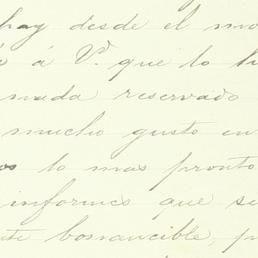 hay desde el mo
ó á V. que lo h
nada reservado
mucho gusto en
os lo mas pronto
informes que se
te bonancible, p